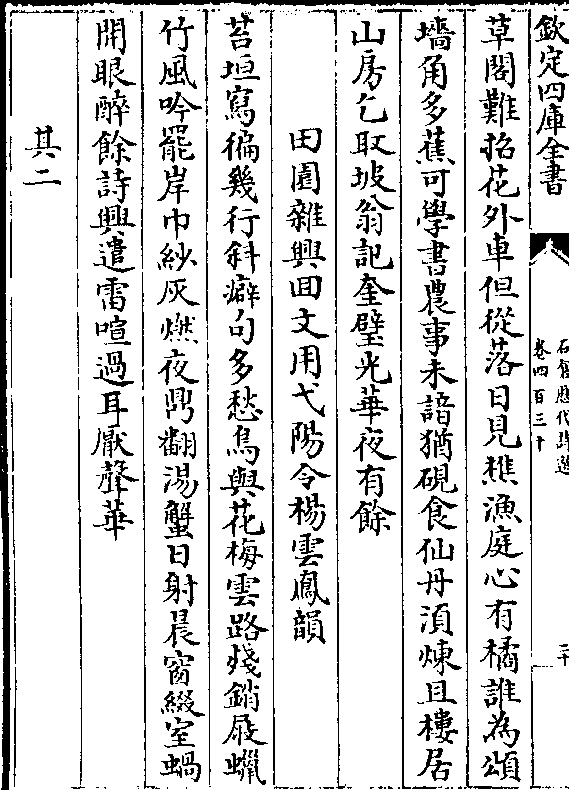 欽定四庫全書
石倉歷代詩選
卷四百三十
二十
草閣難招花外車但從落日見樵漁庭心有橘誰為頌
墻角多蕉可學書農事未諳猶硯食仙丹湏煉且樓居
山房乞取坡翁記奎璧光華夜有餘
田園雜興回文用弋陽令楊雲鳳韻
苔垣寫徧幾行斜癖句多愁鳥與花梅雲路殘銷屐蠟
竹風吟罷岸巾紗灰燃夜鼎翻湯蟹日射晨窗綴室蝸
開眼醉餘詩興遣雷喧過耳厭聲華
其二